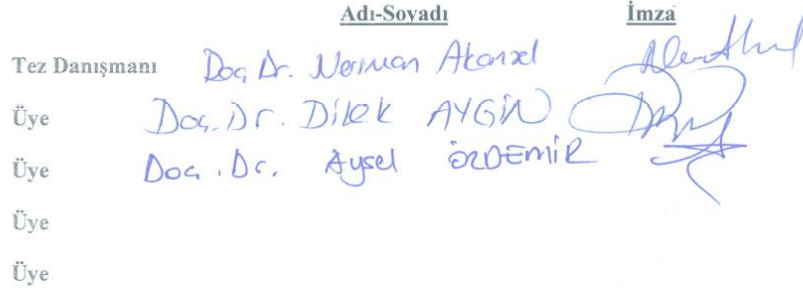 Adı-Soyadı İmza
Tez Danışmanı Doç. Dr. Nerman Akansel
Üye Doç. Dr. Dilek AYGİN
Üye Doç. Dr. Aysel ÖZDEMİR
Üye
Üye